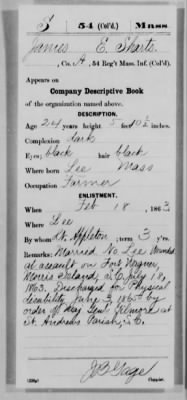 S 54 (Col'd.) Mass.
James E. Sharts
, Co. A, 54 Reg't Mass. Inf. (Col'd.)
Appears on
Company Descriptive Book
of the organization named above.
DESCRIPTION.
Age 24 years; height 5 feet 10½ inches.
Complexion dark
Eyes black; hair black
Where born Lee Mass
Occupation Farmer
ENLISTMENT.
When Feb 18, 1863
Where Lee
By whom Lt. Appleton; term 3 y'rs.
Remarks: Married No Lee Wounded
at assault on Fort Wagner
Morris Island, S.C. July 18,
1863. Discharged for Physical
disability June 3, 1865 by
order of Maj Genl Gilmore at
St. Andrews Parish, S.C.
J B Gage
Copyist.